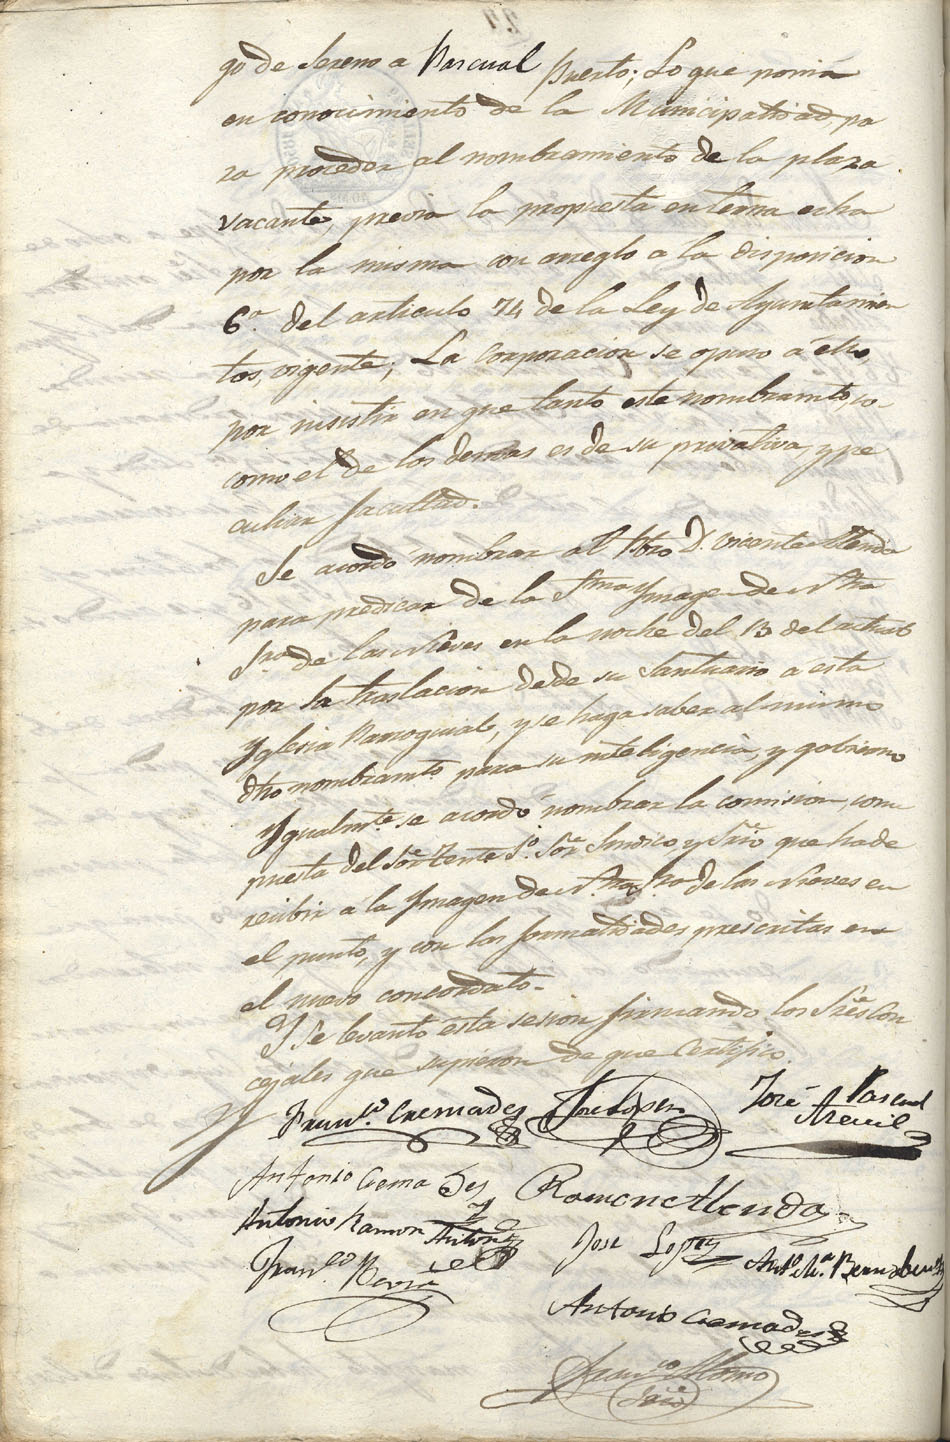 go de Sereno a Pascual Puerto; Lo que ponia
en conocimiento de la Municipalidad pa
ra proceder al nombramiento de la plaza
vacante, previa la propuesta en terna echa
por la misma con arreglo a la disposicion
6.a del articulo 74 de la Ley de Ayuntamien
tos, vigente; La Corporacion se opuso a ello,
por insistir en que tanto este nombramto, co-
como el de los demas es de su privativa, y pe
culiar facultad.
Se acordó nombrar al Pbro D. Vicente Llenda
para predicar de la Sma Ymagen de Ntra
Sra de las Nieves en la noche del 13 del actual
por la traslacion desde su Santuario a esta
Yglesia Parroquial, y se haga saber al mismo
dho nombramto para su inteligencia, y gobierno
Ygualmte se acordó nombrar la comision com
puesta del Sor Tente 1º Sor Sindico y Srio que ha de
recibir a la Ymagen de Ntra Sra de las Nieves en
el punto, y con las formalidades prescritas en
el nuevo concordato.
Y se levantó esta sesion firmando los Sres Con
cejales que supieron de que Certifico.
Franco Cremades José Lopez José Pascual
Antonio Cremades Ramon Allenda
Antonio Ramon Anton José Lopez Anto Ma Bernabeu
Franco
Antonio Cremades
Franco Alonso
Srio